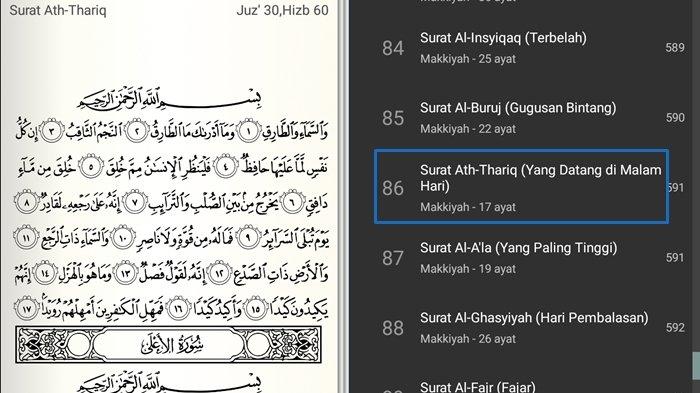 Surat Ath-Thariq Juz' 30,Hizb 60
بِسْمِ اللَّهِ الرَّحْمَٰنِ الرَّحِيمِ
وَالسَّمَاءِ وَالطَّارِقِ ١ وَمَا أَدْرَاكَ مَا الطَّارِقُ ٢ النَّجْمُ الثَّاقِبُ ٣ إِنْ كُلُّ
نَفْسٍ لَمَّا عَلَيْهَا حَافِظٌ ٤ فَلْيَنْظُرِ الْإِنْسَانُ مِمَّ خُلِقَ ٥ خُلِقَ مِنْ مَاءٍ
دَافِقٍ ٦ يَخْرُجُ مِنْ بَيْنِ الصُّلْبِ وَالتَّرَائِبِ ٧ إِنَّهُ عَلَىٰ رَجْعِهِ لَقَادِرٌ ٨
يَوْمَ تُبْلَى السَّرَائِرُ ٩ فَمَا لَهُ مِنْ قُوَّةٍ وَلَا نَاصِرٍ ١٠ وَالسَّمَاءِ ذَاتِ الرَّجْعِ ١١
وَالْأَرْضِ ذَاتِ الصَّدْعِ ١٢ إِنَّهُ لَقَوْلٌ فَصْلٌ ١٣ وَمَا هُوَ بِالْهَزْلِ ١٤ إِنَّهُمْ
يَكِيدُونَ كَيْدًا ١٥ وَأَكِيدُ كَيْدًا ١٦ فَمَهِّلِ الْكَافِرِينَ أَمْهِلْهُمْ رُوَيْدًا ١٧
سُورَةُ الْأَعْلَى
بِسْمِ اللَّهِ الرَّحْمَٰنِ الرَّحِيمِ
84 Surat Al-Insyiqaq (Terbelah) 589
Makkiyah - 25 ayat
85 Surat Al-Buruj (Gugusan Bintang) 590
Makkiyah - 22 ayat
86 Surat Ath-Thariq (Yang Datang di Malam
Hari) 591
Makkiyah - 17 ayat
87 Surat Al-A'la (Yang Paling Tinggi) 591
Makkiyah - 19 ayat
88 Surat Al-Ghasyiyah (Hari Pembalasan) 592
Makkiyah - 26 ayat
Surat Al-Fajr (Fajar)